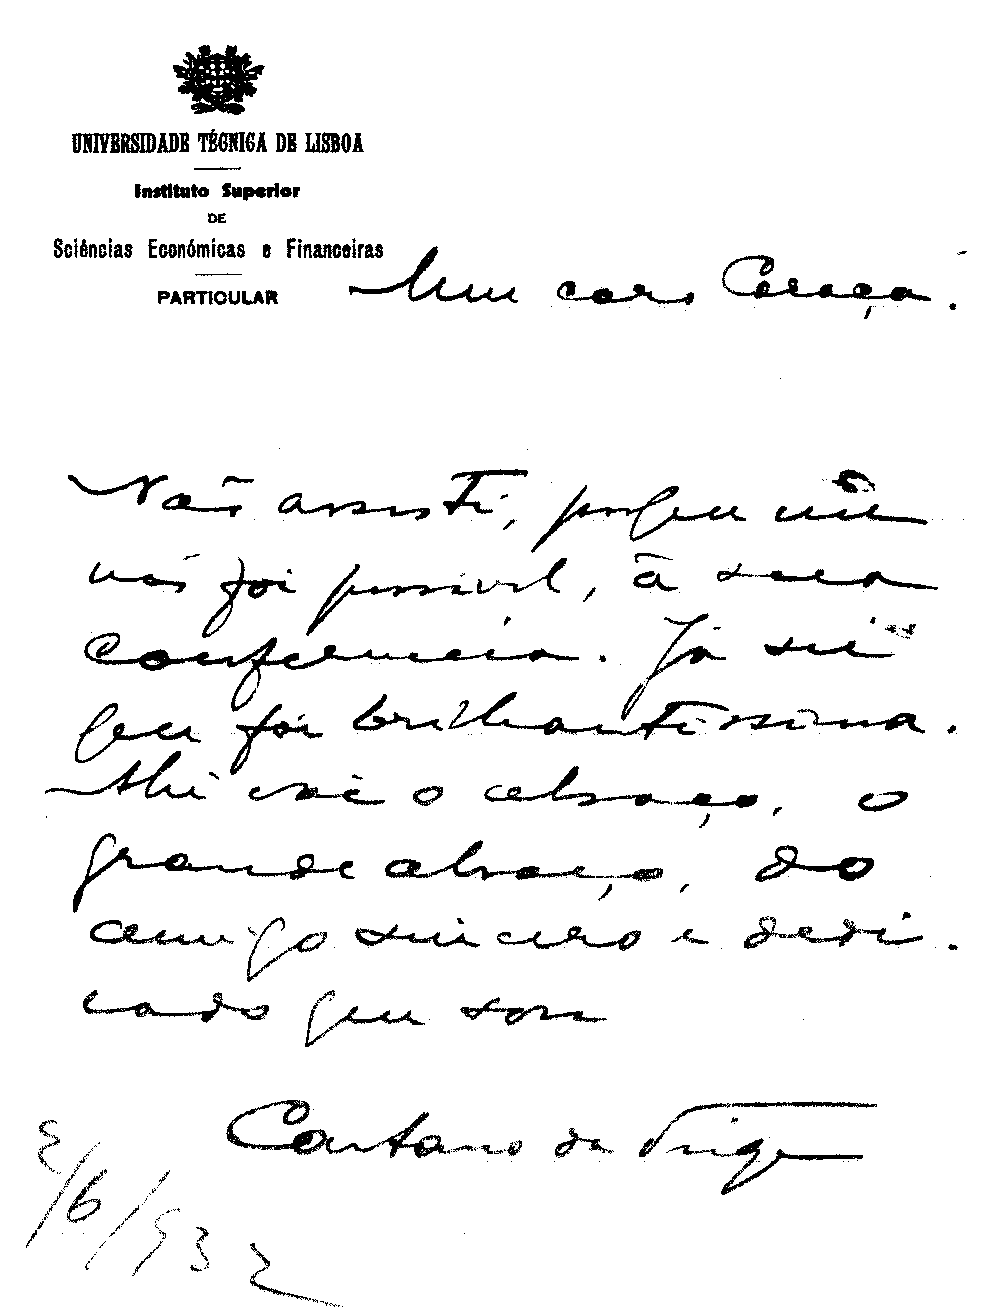 UNIVERSIDADE TÉCNICA DE LISBOA
Instituto Superior
DE
Sciências Económicas e Financeiras
PARTICULAR
Meu caro Caraça.
Não assisti, porque me
não foi possível, à sua
conferencia. Já sei
que foi brilhantissima.
Ahi vai o abraço, o
grande abraço, do
amigo sincero e dedi-
cado que sou
Caetano da Veiga
2/6/932